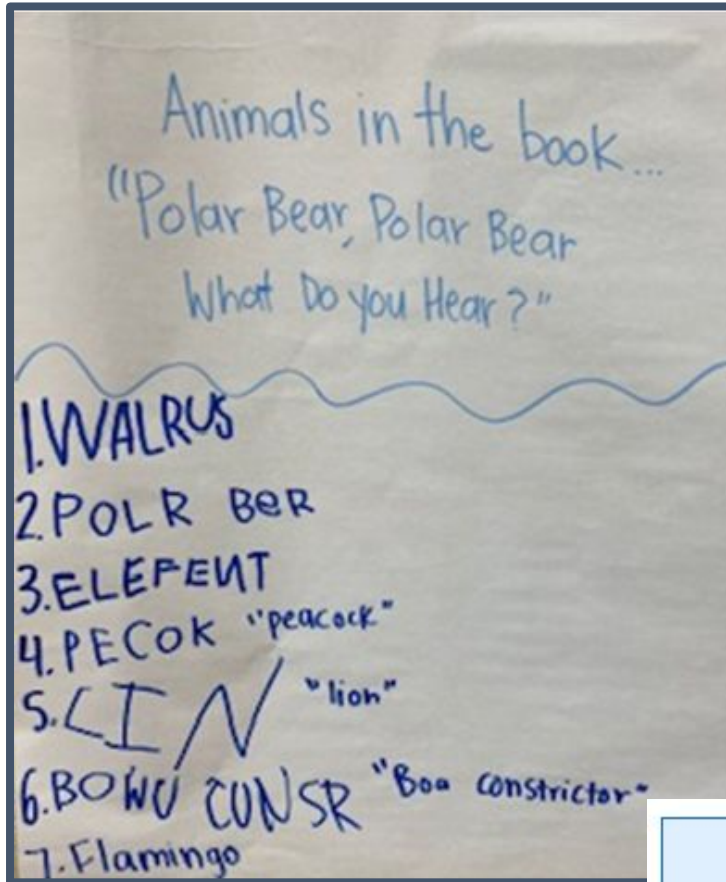 Animals in the book...
"Polar Bear, Polar Bear
What Do you Hear?"
1. WALRUS
2. POLR BeR
3. ELEFENT
4. PECOK "peacock"
5. LIN "lion"
6. BOWU CUNSR "Boa constrictor"
7. Flamingo